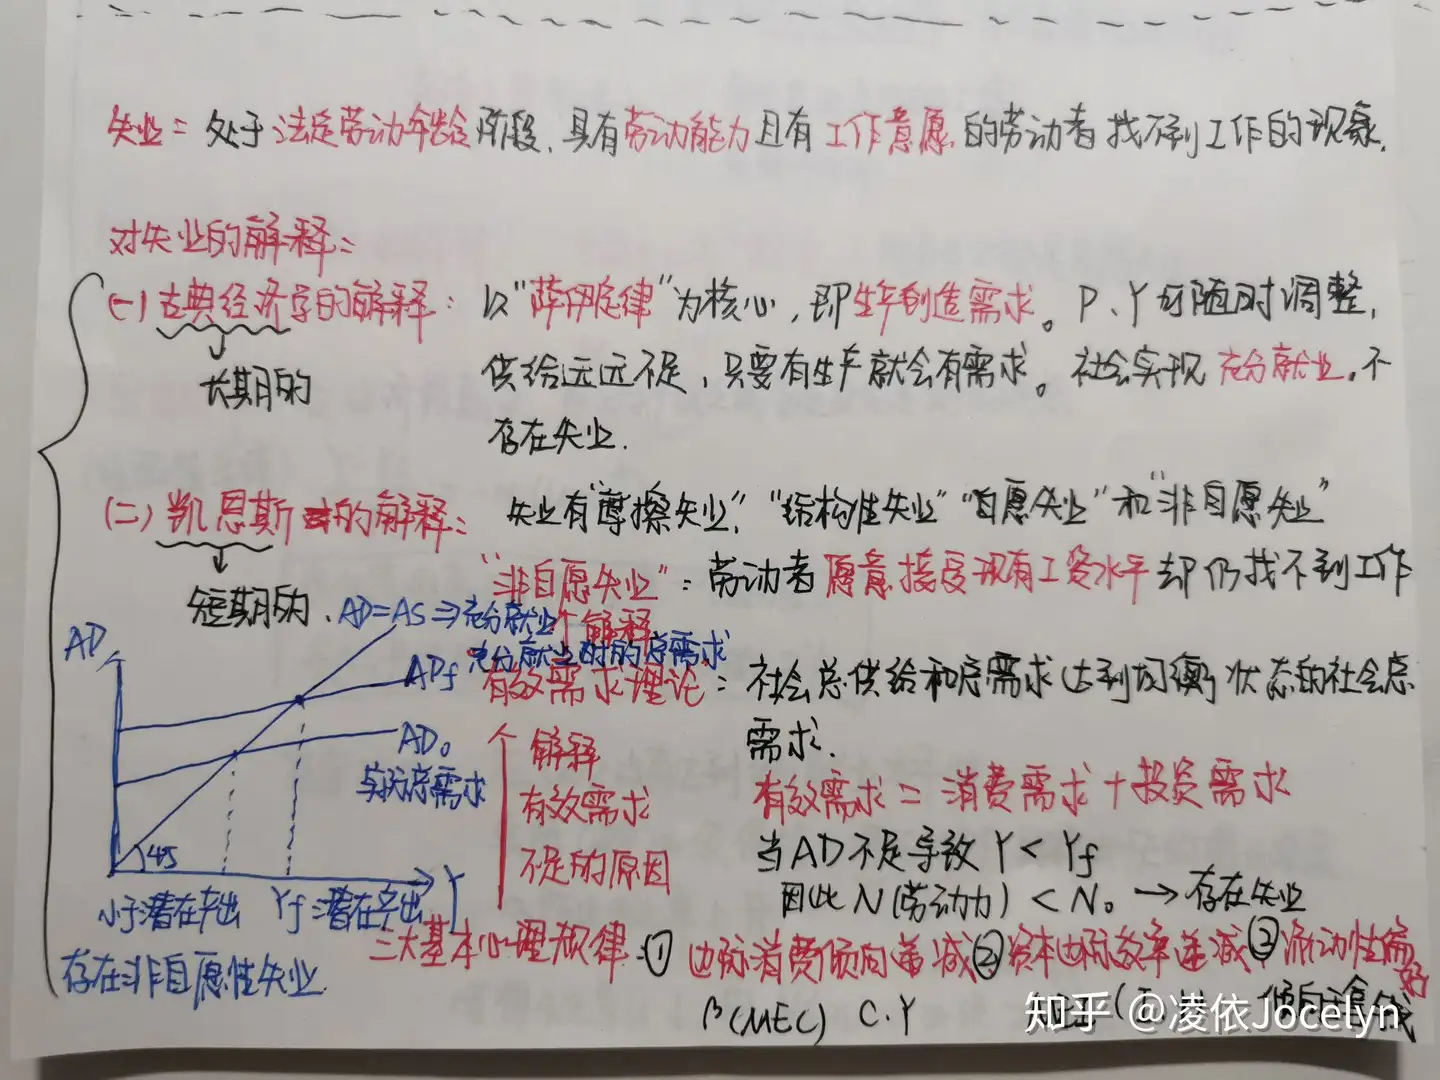 失业：处于法定劳动年龄阶段，具有劳动能力且有工作意愿的劳动者找不到工作的现象.
对失业的解释：
(一)古典经济学的解释： 以“萨伊定律”为核心，即生产创造需求。P、Y可随时调整，
长期的 供给远远不足，只要有生产就会有需求。社会实现充分就业，不
存在失业.
(二)凯恩斯的解释： 失业有“摩擦失业”，“结构性失业”“自愿失业”和“非自愿失业”
“非自愿失业”：劳动者愿意接受现有工资水平却仍找不到工作
短期的. AD=AS⇒充分就业
↑解释
AD 充分就业时的总需求
ADf 有效需求理论：社会总供给和总需求达到均衡状态的社会总
需求.
AD₀ 解释
实际总需求 有效需求 有效需求＝消费需求＋投资需求
不足的原因 当AD不足导致Y<Yf
45 Y 因此N(劳动力)<N₀→存在失业
小于潜在产出 Yf潜在产出
三大基本心理规律：①边际消费倾向递减②资本边际效率递减③流动性偏好
存在非自愿性失业
β(MEC) C.Y
知乎 @凌依Jocelyn